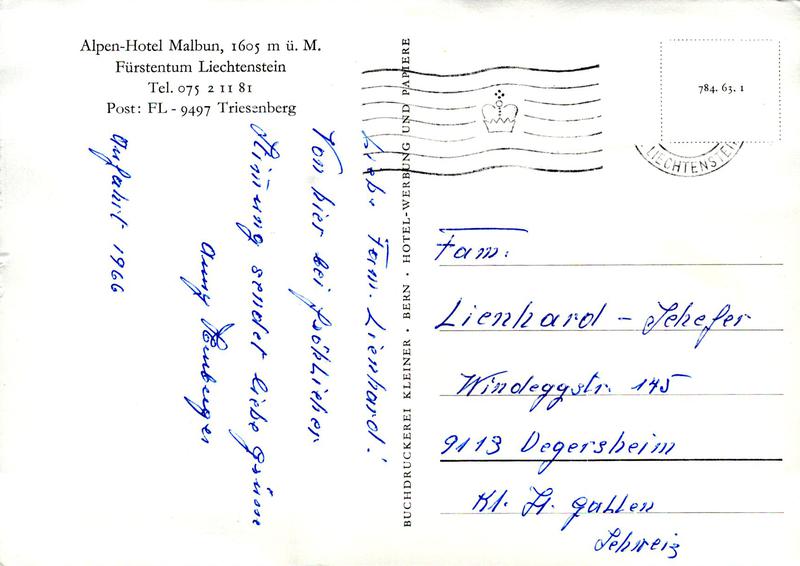 Alpen-Hotel Malbun, 1605 m ü. M.
Fürstentum Liechtenstein
Tel. 075 2 11 81
Post: FL - 9497 Triesenberg
Liebe Fam. Lienhard!
Von hier bei fröhlicher
Stimung sendet liebe Grüsse
Auffahrt 1966
BUCHDRUCKEREI KLEINER · BERN · HOTEL-WERBUNG UND PAPIERE
784. 63. 1
LIECHTENSTEIN
Fam:
Lienhard - Schefer
Windeggstr. 145
9113 Degersheim
Kt. St. Gallen
Schweiz